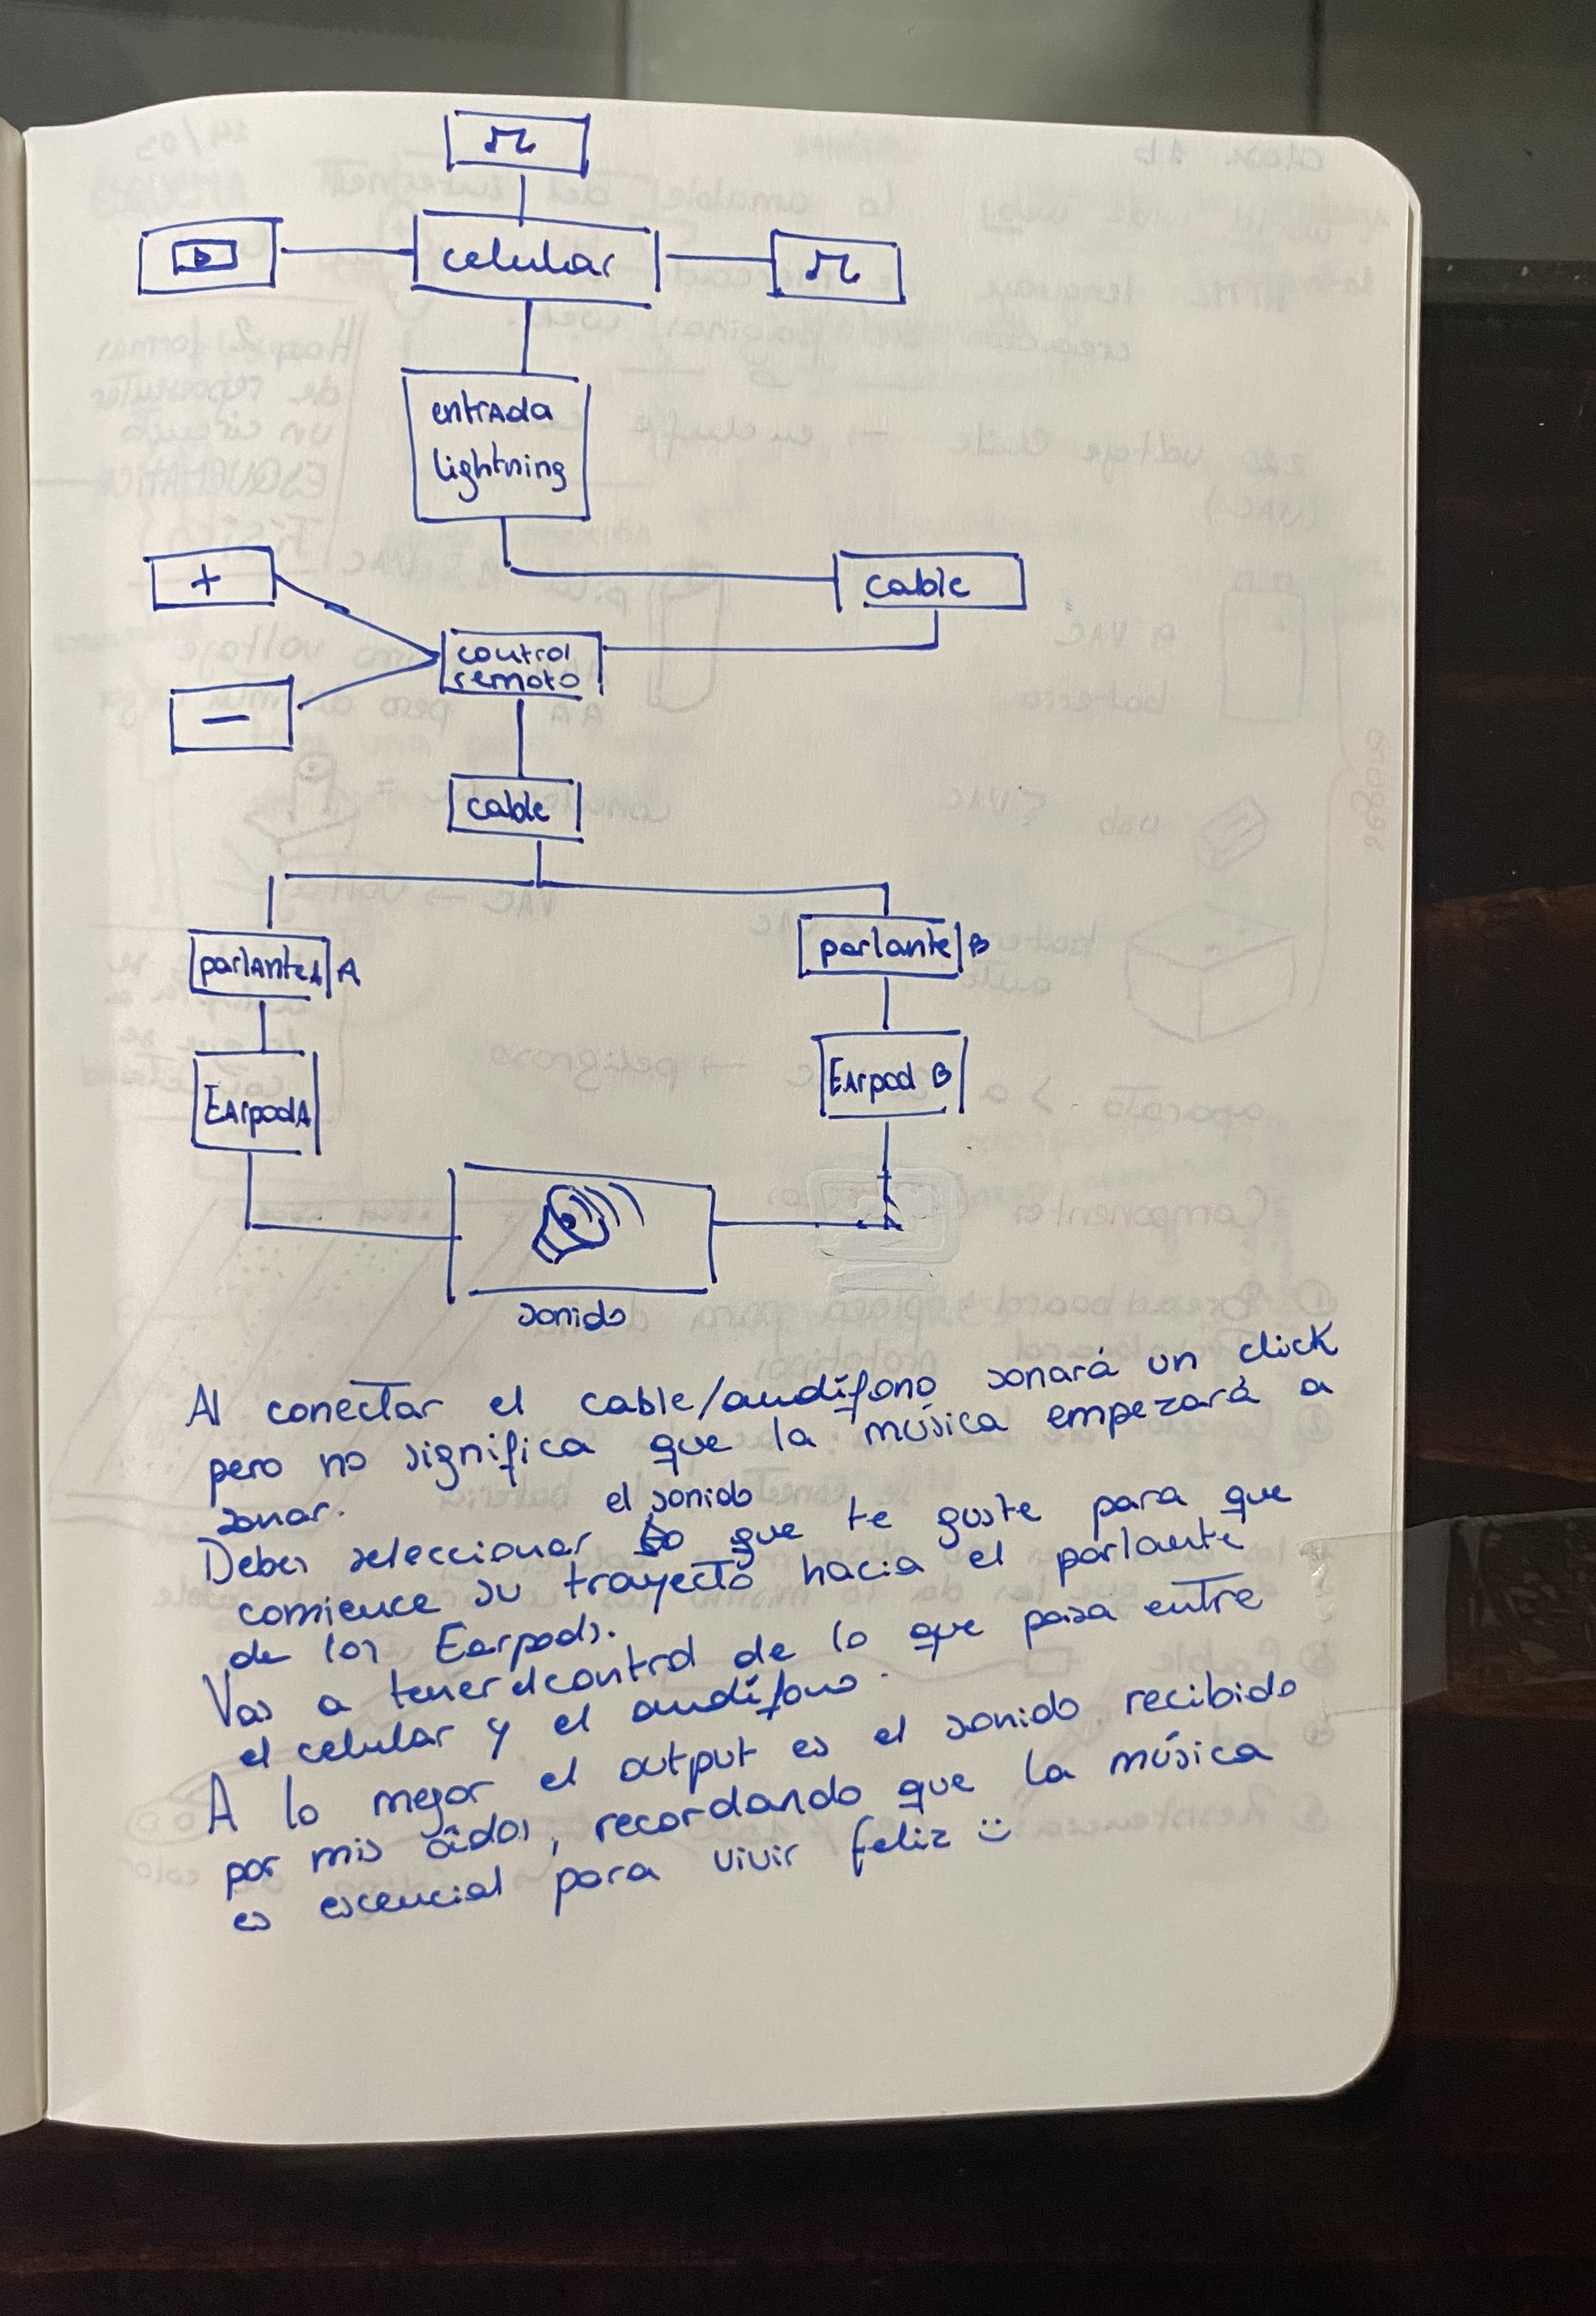 celular
entrada
lightning
+
cable
control
remoto
-
cable
parlante A
parlante B
Earpod A
Earpod B
sonido
Al conectar el cable/audífono sonará un click
pero no significa que la música empezará a
sonar.
el sonido
Debes seleccionar que te guste para que
comience su trayecto hacia el parlante
de los Earpods.
Vas a tener el control de lo que pasa entre
el celular y el audífono.
A lo mejor el output es el sonido recibido
por mis oídos, recordando que la música
es escencial para vivir feliz :)